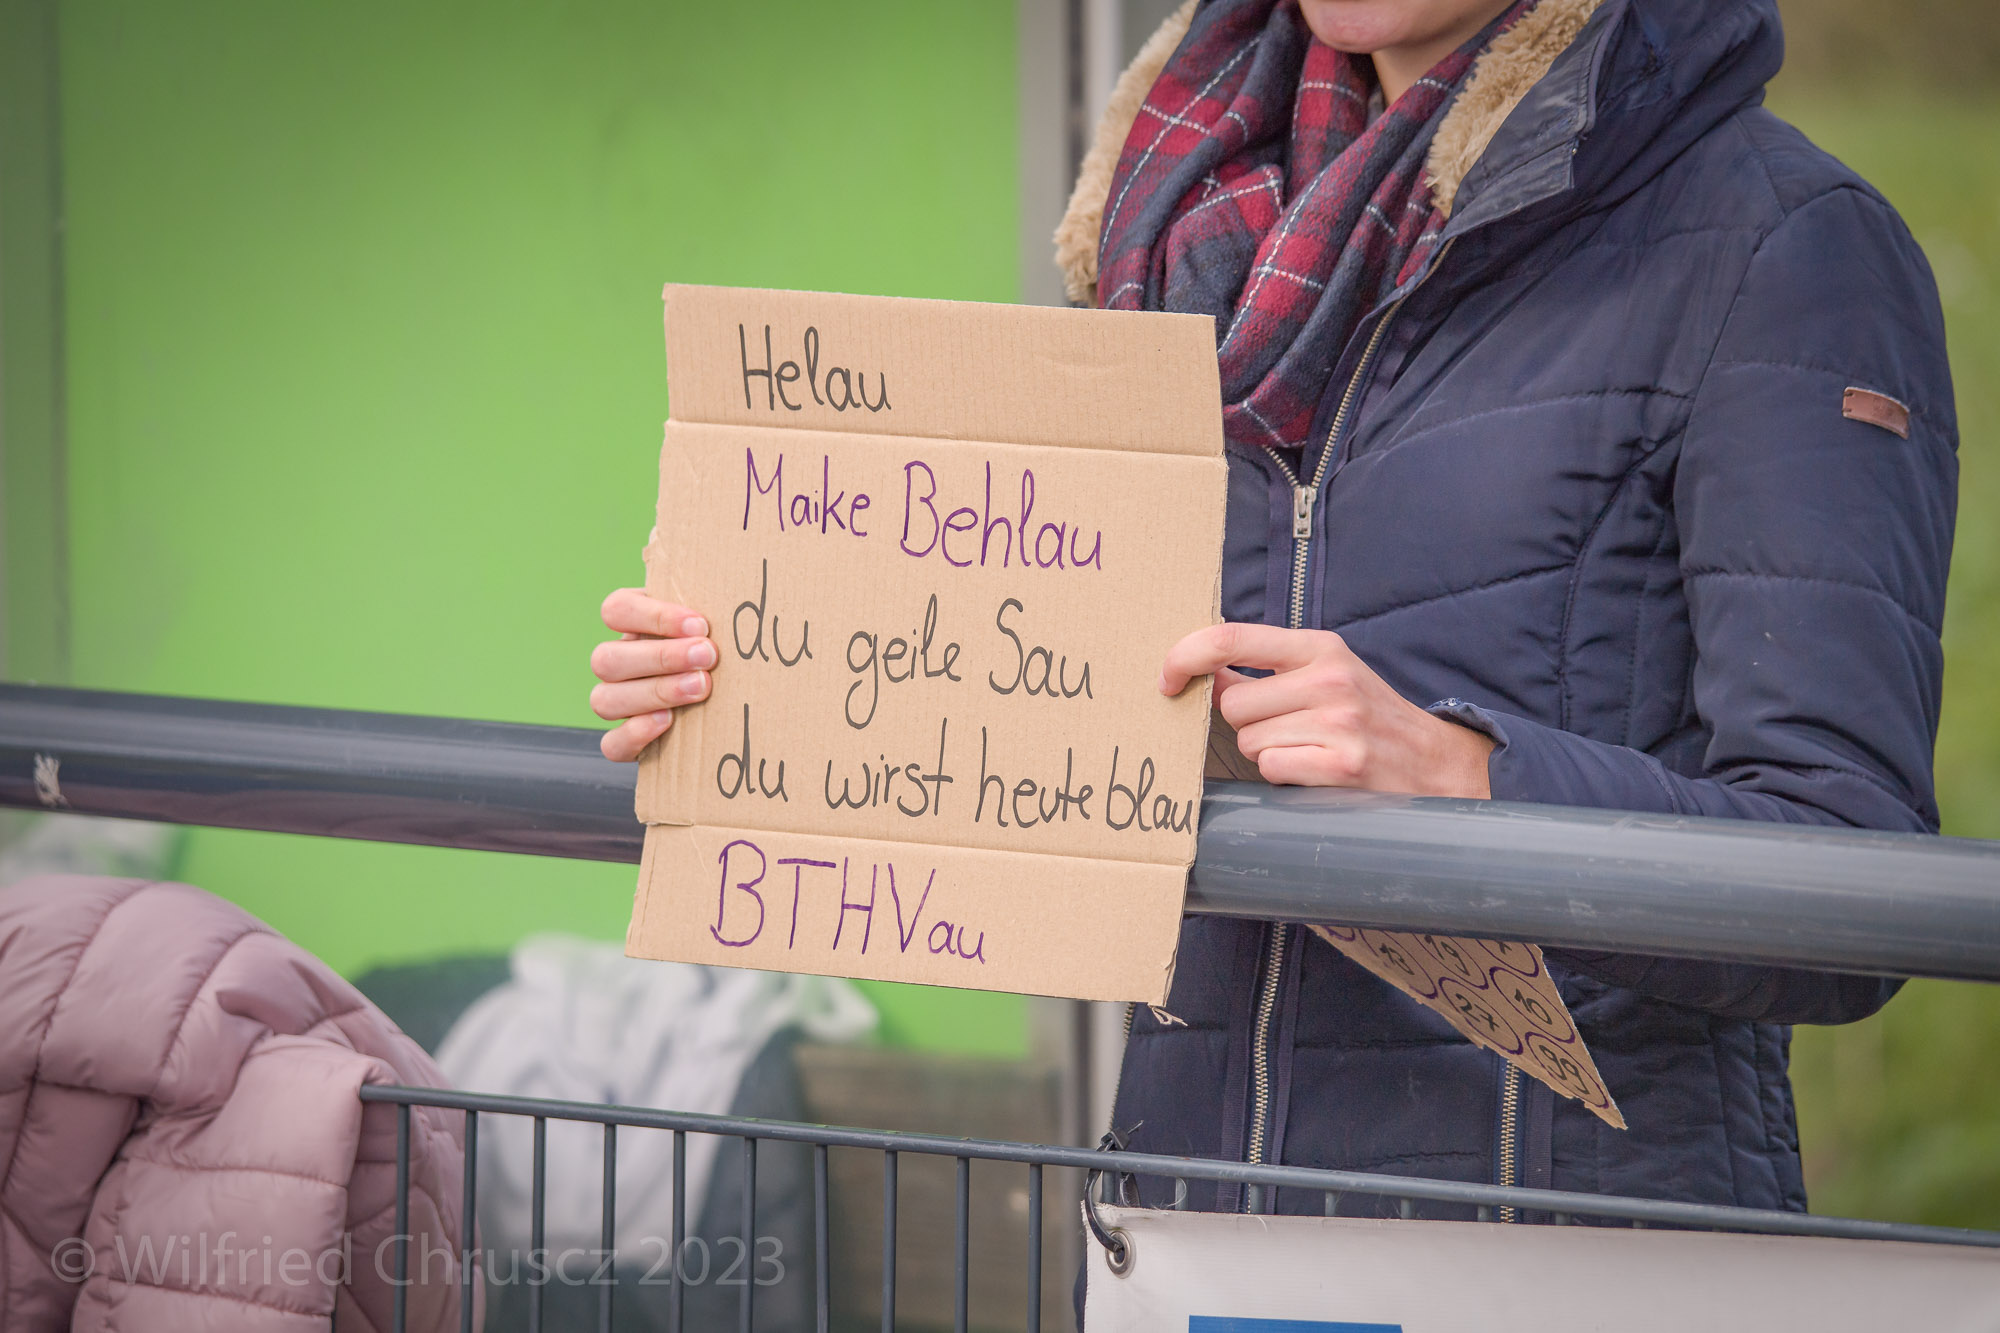 Helau
Maike Behlau
du geile Sau
du wirst heute blau
BTHVau
13 19
27 10
99
© Wilfried Chruscz 2023